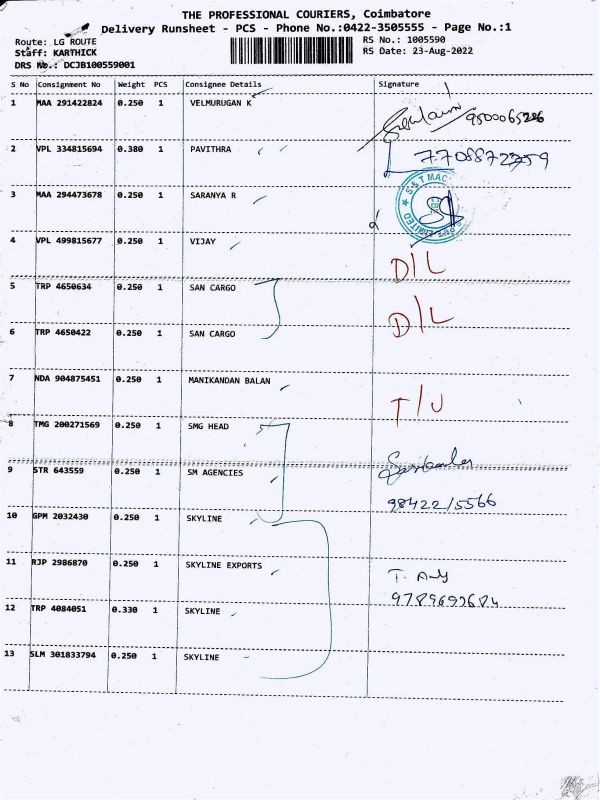 THE PROFESSIONAL COURIERS, Coimbatore
Delivery Runsheet - PCS - Phone No.:0422-3505555 - Page No.:1
Route: LG ROUTE RS No.: 1005590
Staff: KARTHICK RS Date: 23-Aug-2022
DRS No.: DCJB100559001
S No Consignment No Weight PCS Consignee Details Signature
1 MAA 291422824 0.250 1 VELMURUGAN K
2 VPL 334815694 0.380 1 PAVITHRA
3 MAA 294473678 0.250 1 SARANYA R
4 VPL 499815677 0.250 1 VIJAY D/L
5 TRP 4650634 0.250 1 SAN CARGO D/L
6 TRP 4650422 0.250 1 SAN CARGO
7 NDA 904875451 0.250 1 MANIKANDAN BALAN T/U
8 TMG 200271569 0.250 1 SMG HEAD
9 STR 643559 0.250 1 SM AGENCIES 9842215566
10 GPM 2032430 0.250 1 SKYLINE
11 RJP 2986870 0.250 1 SKYLINE EXPORTS
12 TRP 4084051 0.330 1 SKYLINE
13 SLM 301833794 0.250 1 SKYLINE